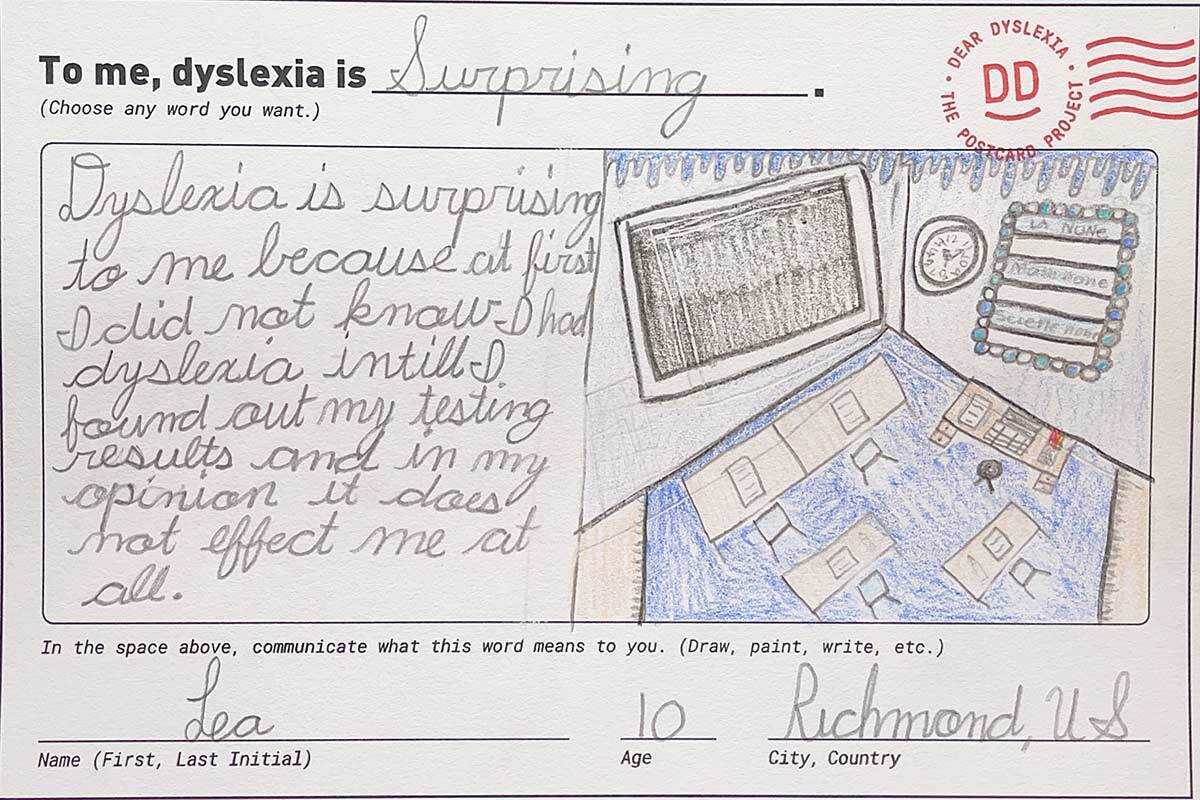 To me, dyslexia is Surprising.
(Choose any word you want.)
DEAR DYSLEXIA • THE POSTCARD PROJECT •
DD
Dyslexia is surprising
to me because at first
I did not know I had
dyslexia intill I
found out my testing
results and in my
opinion it does
not effect me at
all.
LA NONe
Math none
In the space above, communicate what this word means to you. (Draw, paint, write, etc.)
Lea 10 Richmond, US
Name (First, Last Initial) Age City, Country